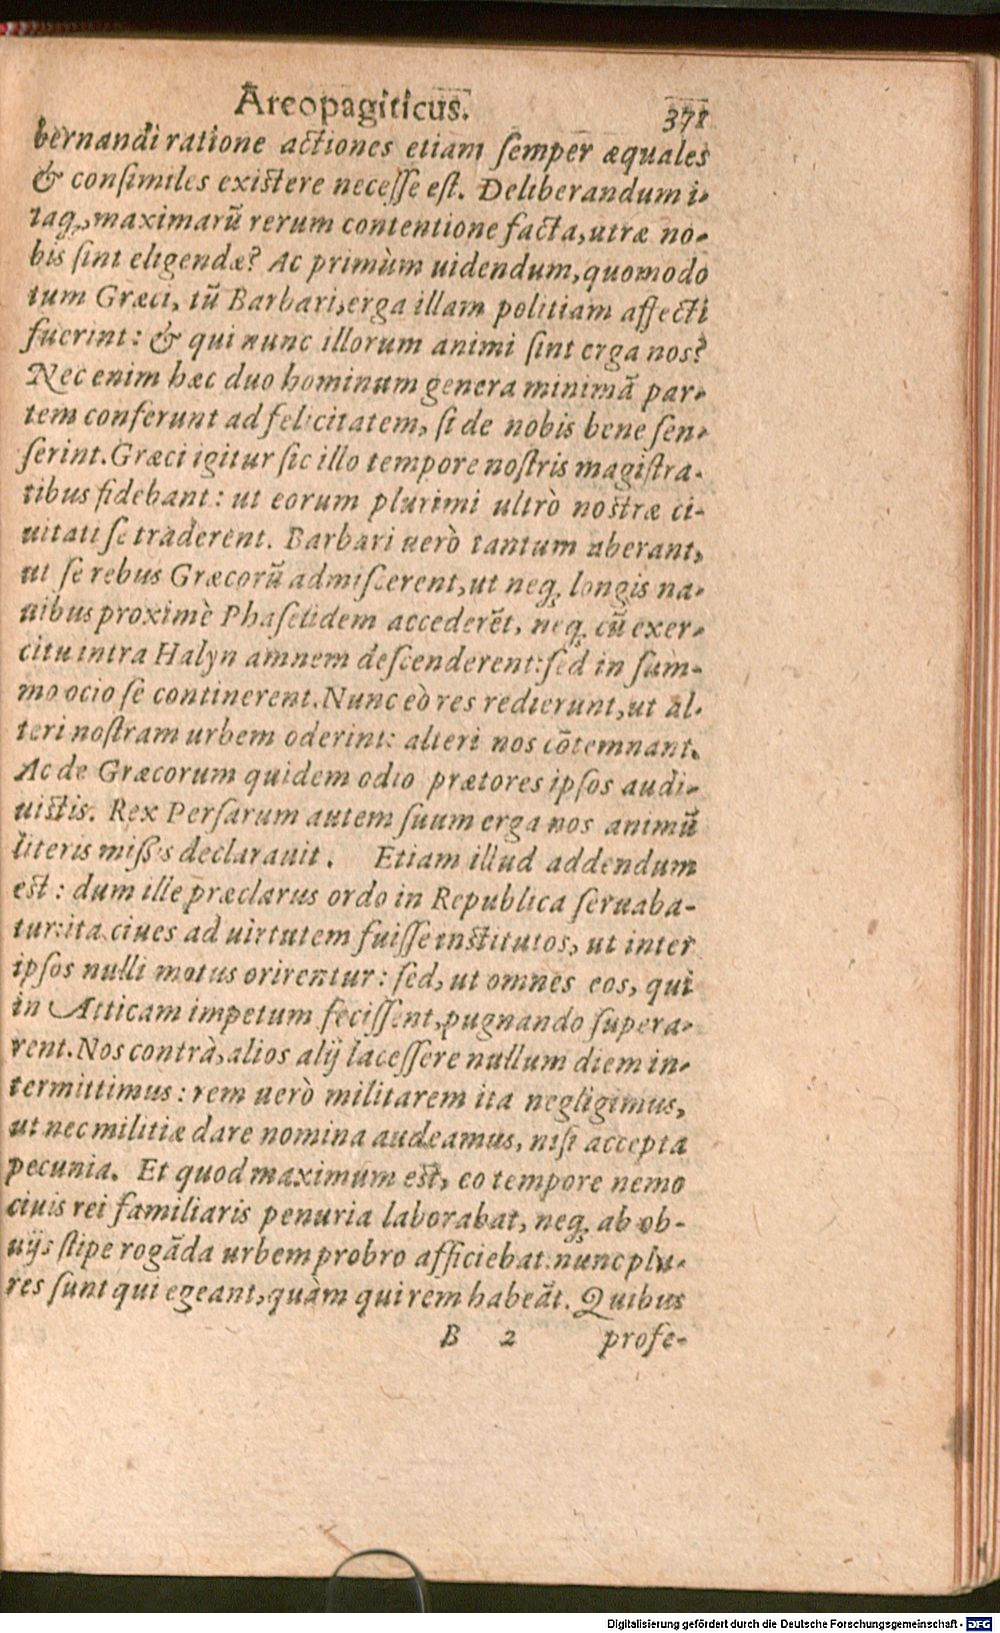 Areopagiticus. 371
bernandi ratione actiones etiam ſemper æquales
& conſimiles exiſtere neceſſe eſt. Deliberandum i-
taq;, maximarũ rerum contentione facta, utræ no-
bis ſint eligendæ? Ac primùm uidendum, quomodo
tum Græci, tũ Barbari, erga illam politiam affecti
fuerint: & qui nunc illorum animi ſint erga nos?
Nec enim hæc duo hominum genera minimã par-
tem conferunt ad felicitatem, ſi de nobis bene ſen-
ſerint. Græci igitur ſic illo tempore noſtris magiſtra-
tibus fidebant: ut eorum plurimi ultrò noſtræ ci-
uitati ſe traderent. Barbari uerò tantum aberant,
ut ſe rebus Græcorũ admiſcerent, ut neq; longis na-
uibus proximè Phaſelidem accederẽt, neq; cũ exer-
citu intra Halyn amnem deſcenderent: ſed in ſum-
mo ocio ſe continerent. Nunc eò res redierunt, ut al-
teri noſtram urbem oderint: alteri nos cõtemnant.
Ac de Græcorum quidem odio prætores ipſos audi-
uiſtis. Rex Perſarum autem ſuum erga nos animũ
literis miſsis declarauit. Etiam illud addendum
eſt: dum ille præclarus ordo in Republica ſeruaba-
tur: ita ciues ad uirtutem fuiſſe inſtitutos, ut inter
ipſos nulli motus orirentur: ſed, ut omnes eos, qui
in Atticam impetum feciſſent, pugnando ſupera-
rent. Nos contrà, alios alij laceſſere nullum diem in-
termittimus: rem uerò militarem ita negligimus,
ut nec militiæ dare nomina audeamus, niſi accepta
pecunia. Et quod maximum eſt, eo tempore nemo
ciuis rei familiaris penuria laborabat, neq; ab ob-
uijs ſtipe rogãda urbem probro afficiebat: nunc plu-
res ſunt qui egeant, quàm qui rem habeãt. Quibus
B 2 profe-
Digitalisierung gefördert durch die Deutsche Forschungsgemeinschaft - DFG